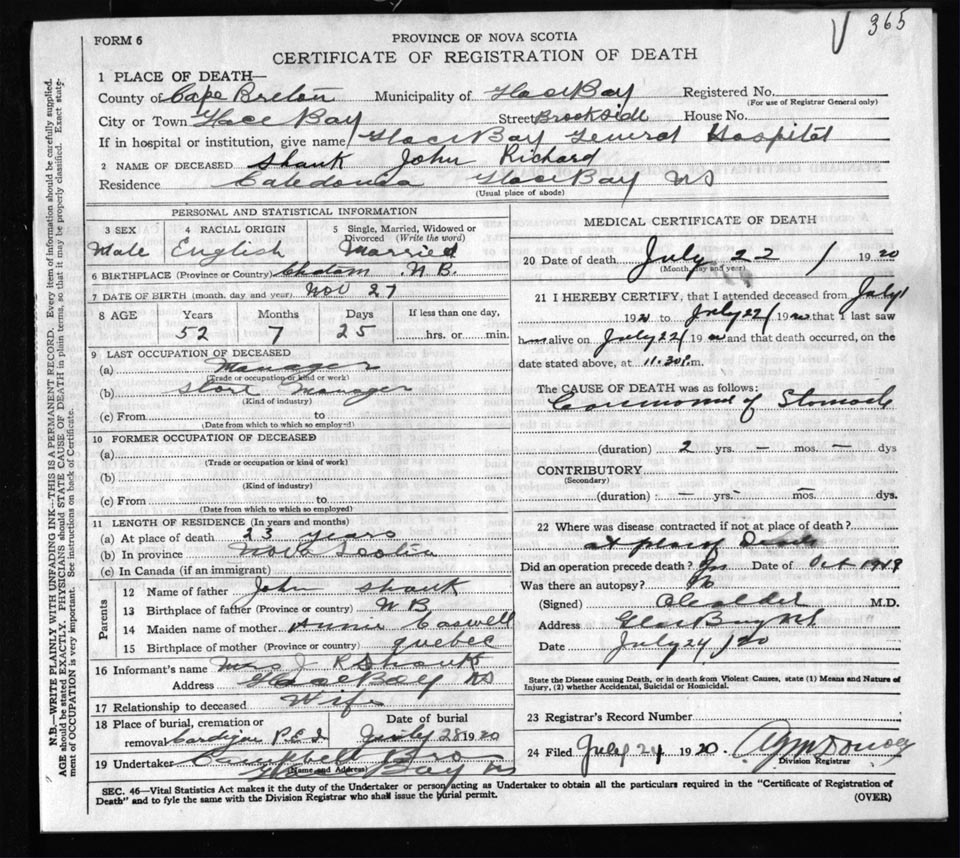 V 365
FORM 6
PROVINCE OF NOVA SCOTIA
CERTIFICATE OF REGISTRATION OF DEATH
1 PLACE OF DEATH—
County of Cape Breton Municipality of Glace Bay Registered No.
(For use of Registrar General only)
City or Town Glace Bay Street Brookside House No.
If in hospital or institution, give name Glace Bay General Hospital
2 NAME OF DECEASED Shank John Richard
Residence Caledonia Glace Bay NS
(Usual place of abode)
PERSONAL AND STATISTICAL INFORMATION
3 SEX 4 RACIAL ORIGIN 5 Single, Married, Widowed or Divorced (Write the word)
Male English Married
6 BIRTHPLACE (Province or Country) Chatam N.B.
7 DATE OF BIRTH (month, day and year) Nov 27
8 AGE Years Months Days If less than one day,
52 7 25 hrs. or min.
9 LAST OCCUPATION OF DECEASED
(a) Manager
(Trade or occupation or kind or work)
(b) Store Manager
(Kind of industry)
(c) From to
(Date from which to which so employed)
10 FORMER OCCUPATION OF DECEASED
(a)
(Trade or occupation or kind of work)
(b)
(Kind of industry)
(c) From to
(Date from which to which so employed)
11 LENGTH OF RESIDENCE (In years and months)
(a) At place of death 23 years
(b) In province Nova Scotia
(c) In Canada (if an immigrant)
Parents
12 Name of father John Shank
13 Birthplace of father (Province or country) N B
14 Maiden name of mother Annie Caswell
15 Birthplace of mother (Province or country) quebec
16 Informant's name Mrs J R Shank
Address Glace Bay NS
17 Relationship to deceased Wife
18 Place of burial, cremation or removal Cardigan P.E.I. Date of burial July 28 1920
19 Undertaker Bros
(Name and Address) Glace Bay NS
MEDICAL CERTIFICATE OF DEATH
20 Date of death July 22 / 1920
(Month, day and year)
21 I HEREBY CERTIFY, that I attended deceased from July 1
1920 to July 22/ 1920 that I last saw
him alive on July 22/ 1920 and that death occurred, on the
date stated above, at 11.30 P.m.
The CAUSE OF DEATH was as follows:
Carcinoma of Stomach
(duration) 2 yrs. — mos. — dys.
CONTRIBUTORY
(Secondary)
(duration) : — yrs. - — mos. dys.
22 Where was disease contracted if not at place of death?
at place of Death
Did an operation precede death? Yes Date of Oct 1919
Was there an autopsy? No
(Signed) M.D.
Address Glace Bay NS
Date July 24/20
State the Disease causing Death, or in death from Violent Causes, state (1) Means and Nature of Injury, (2) whether Accidental, Suicidal or Homicidal.
23 Registrar's Record Number
24 Filed July 24 1920
Division Registrar
SEC. 46—Vital Statistics Act makes it the duty of the Undertaker or person acting as Undertaker to obtain all the particulars required in the "Certificate of Registration of
Death" and to fyle the same with the Division Registrar who shall issue the burial permit. (OVER)
N.B.—WRITE PLAINLY WITH UNFADING INK—THIS IS A PERMANENT RECORD. Every item of information should be carefully supplied.
AGE should be stated EXACTLY. PHYSICIANS should STATE CAUSE OF DEATH in plain terms, so that it may be properly classified. Exact statement of OCCUPATION is very important. See instructions on back of Certificate.